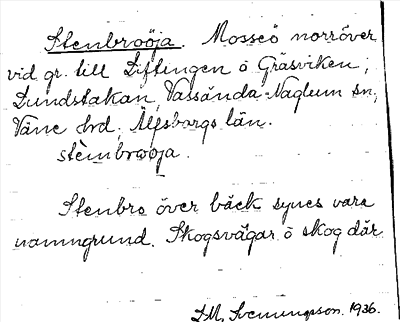 Stenbroöja. Mosseö norröver
vid gr. till Liftingen o Gräsviken;
Lundstakan, Vassända-Naglum sn,
Väne hrd, Älfsborgs län.
stèmbrωøja.
Stenbro över bäck synes vara
namngrund. Skogsvägar o skog där
Svenungsson. 1936.